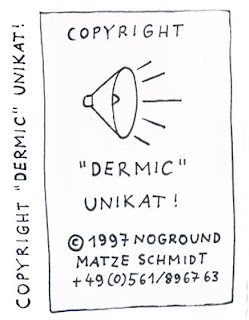 COPYRIGHT "DERMIC" UNIKAT!
COPYRIGHT
"DERMIC"
UNIKAT!
© 1997 NOGROUND
MATZE SCHMIDT
+49(0)561/896763